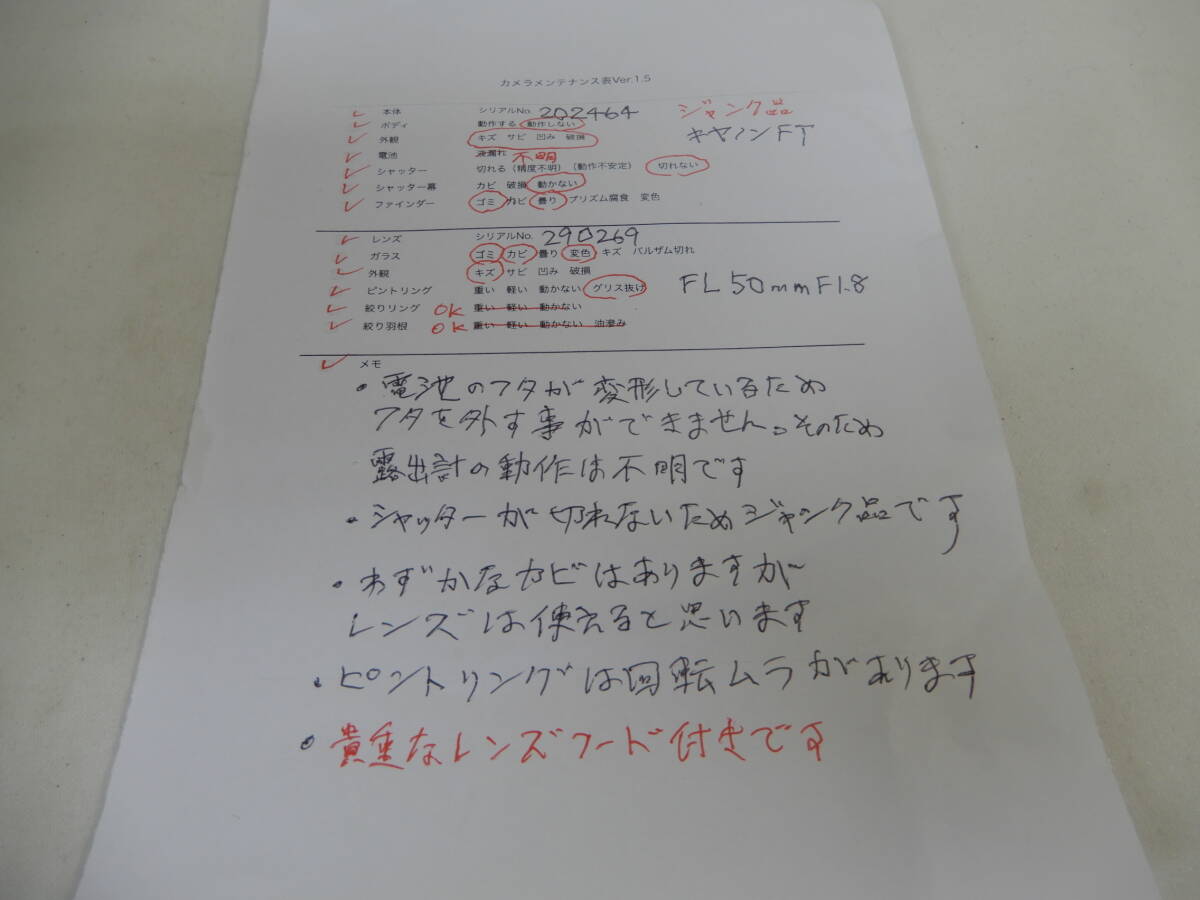 カメラメンテナンス表Ver.1.5
✓ 本体 シリアルNo. 202464 ジャンク品
✓ ボディ 動作する 動作しない キヤノンFT
✓ 外観 キズ サビ 凹み 破損
✓ 電池 液漏れ 不明
✓ シャッター 切れる（精度不明）（動作不安定） 切れない
✓ シャッター幕 カビ 破損 動かない
✓ ファインダー ゴミ カビ 曇り プリズム腐食 変色
✓ レンズ シリアルNo. 290269
✓ ガラス ゴミ カビ 曇り 変色 キズ バルザム切れ
✓ 外観 キズ サビ 凹み 破損
✓ ピントリング 重い 軽い 動かない グリス抜け FL 50mmF1.8
✓ 絞りリング OK 重い 軽い 動かない
✓ 絞り羽根 OK 重い 軽い 動かない 油滲み
✓ メモ
・電池のフタが変形しているため
フタを外す事ができません。そのため
露出計の動作は不明です
・シャッターが切れないためジャンク品です
・わずかなカビはありますが
レンズは使えると思います
・ピントリングは回転ムラがあります
・貴重なレンズフード付きです